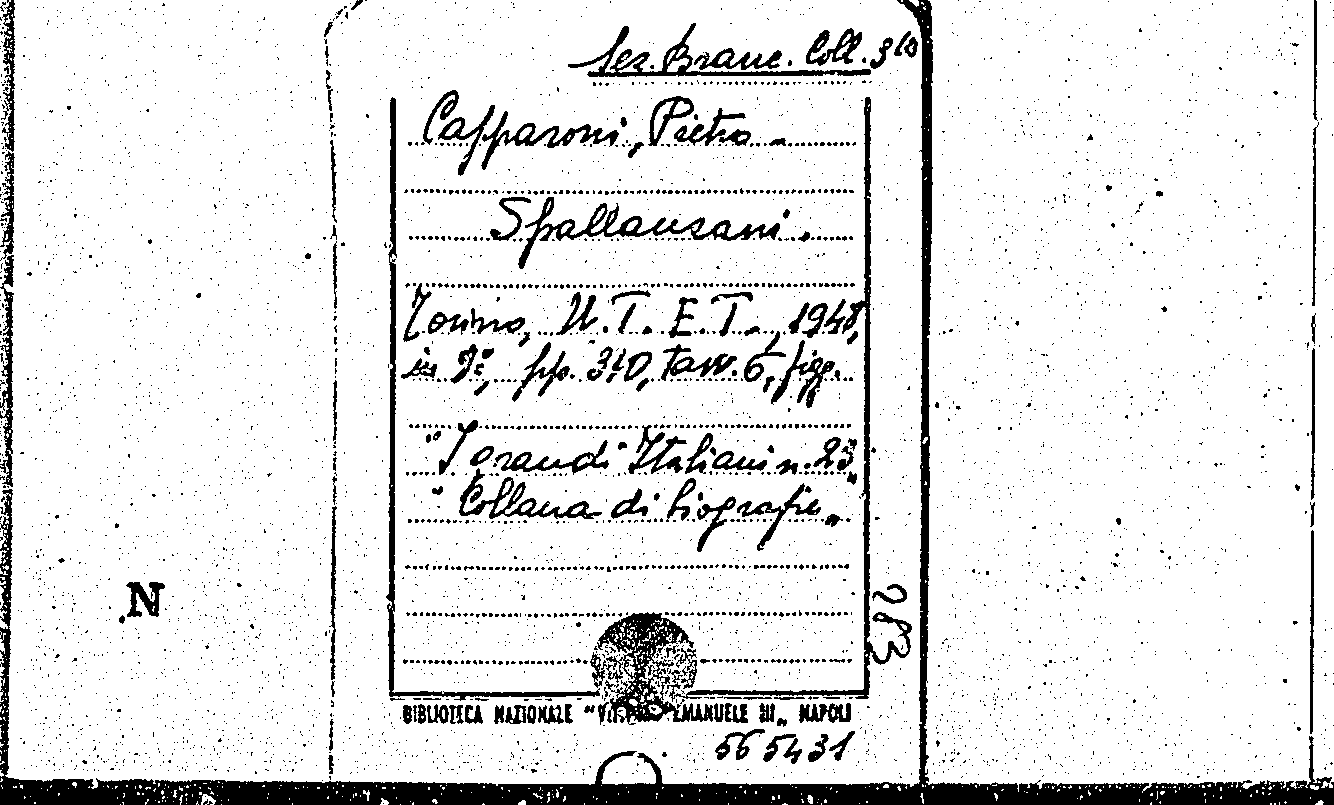 Sez. Branc. Coll. 3
Capparoni, Pietro -
Spallanzani.
Torino, U.T.E.T., 1948,
in 8°, pp. 310, tavv. 6, figg.
"I grandi Italiani n. 23"
"Collana di biografie"
283
N
BIBLIOTECA NAZIONALE "VITTORIO EMANUELE III" NAPOLI
565431